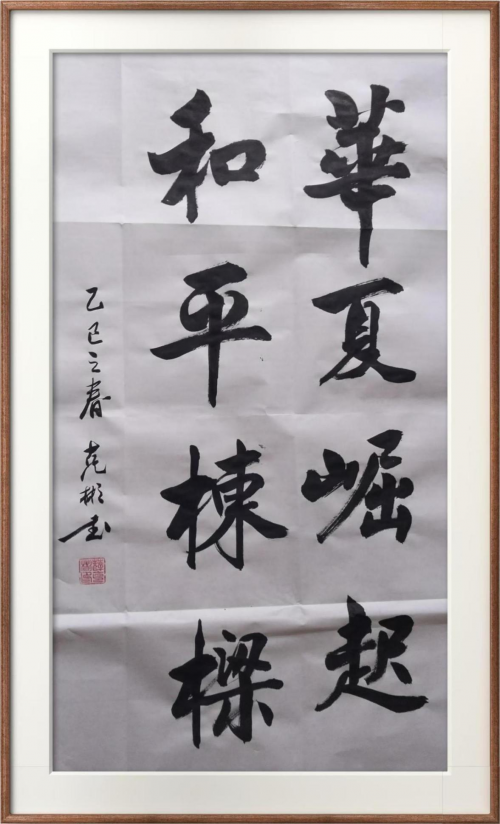 華夏崛起
和平棟樑
乙巳之春 克彬书